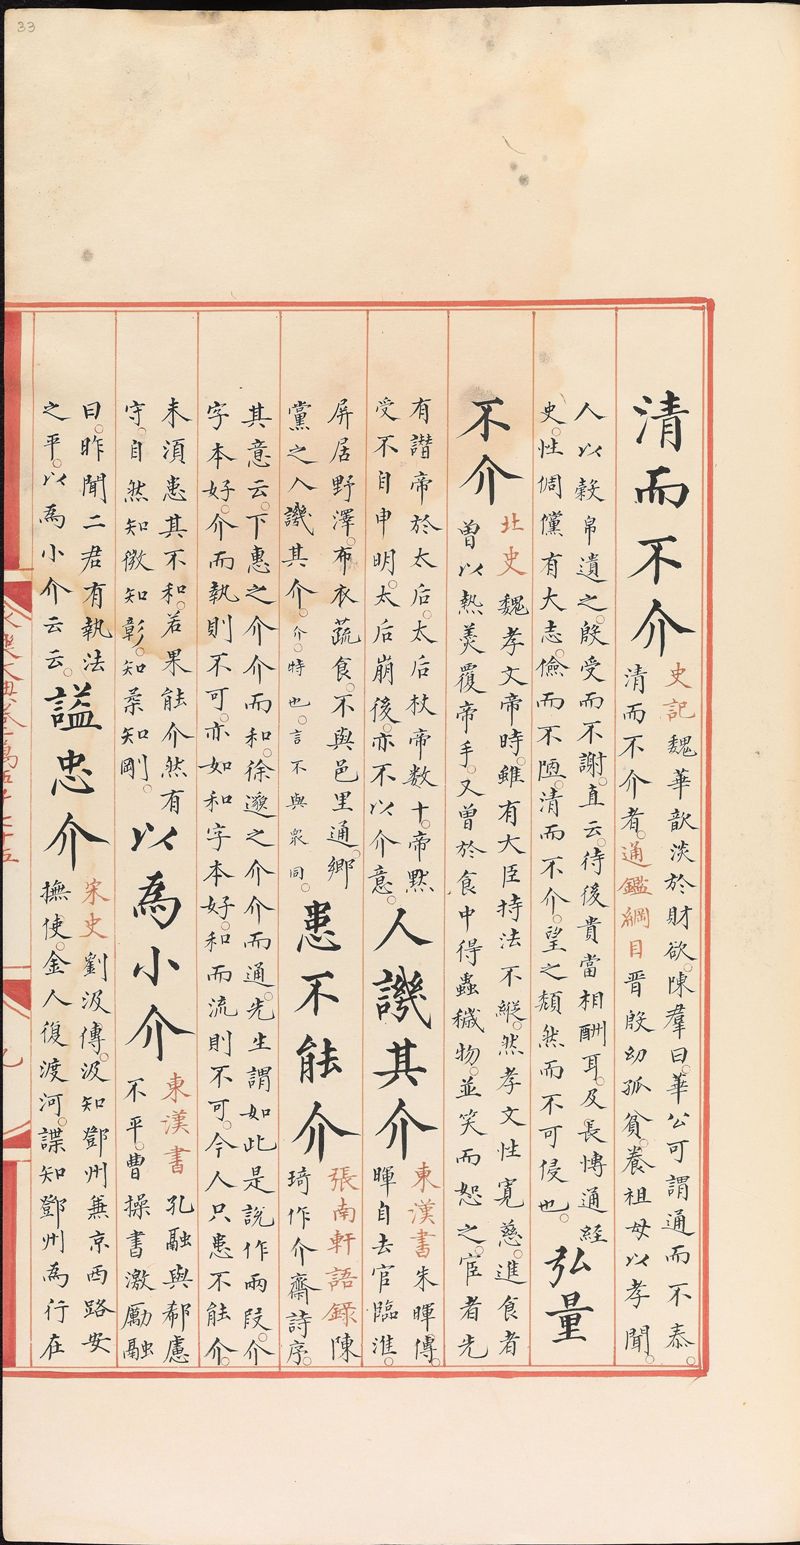 33
清而不介
史記魏華歆淡於財欲。陳羣曰。華公可謂通而不泰。
清而不介者。通鑑綱目晉殷幼孤貧。養祖母以孝聞。
人以穀帛遺之。殷受而不謝。直云。待後貴當相酬耳。及長博通經
史。性倜儻有大志。儉而不陋。清而不介。望之頹然而不可侵也。
弘量
不介
北史魏孝文帝時。雖有大臣持法不縱。然孝文性寬慈。進食者
曾以熱羹覆帝手。又曾於食中得蟲穢物。並笑而恕之。宦者先
有譖帝於太后。太后杖帝數十。帝默
受不自申明。太后崩後。亦不以介意。
人譏其介
東漢書朱暉傳。
暉自去官臨淮。
屏居野澤。布衣蔬食。不與邑里通。鄉
黨之人譏其介。介。特也。言不與衆同。
患不能介
張南軒語錄陳
琦作介齋詩序。
其意云。下惠之介介而和。徐邈之介介而通。先生謂如此是說作兩段。介
字本好。介而執則不可。亦如和字本好。和而流則不可。今人只患不能介。
未須患其不和。若果能介然有
守。自然知微知彰。知柔知剛。
以為小介
東漢書孔融與郗慮
不平。曹操書激勵融
曰。昨聞二君有執法
之平。以為小介云云。
謚忠介
宋史劉汲傳。汲知鄧州兼京西路安
撫使。金人復渡河。諜知鄧州為行在